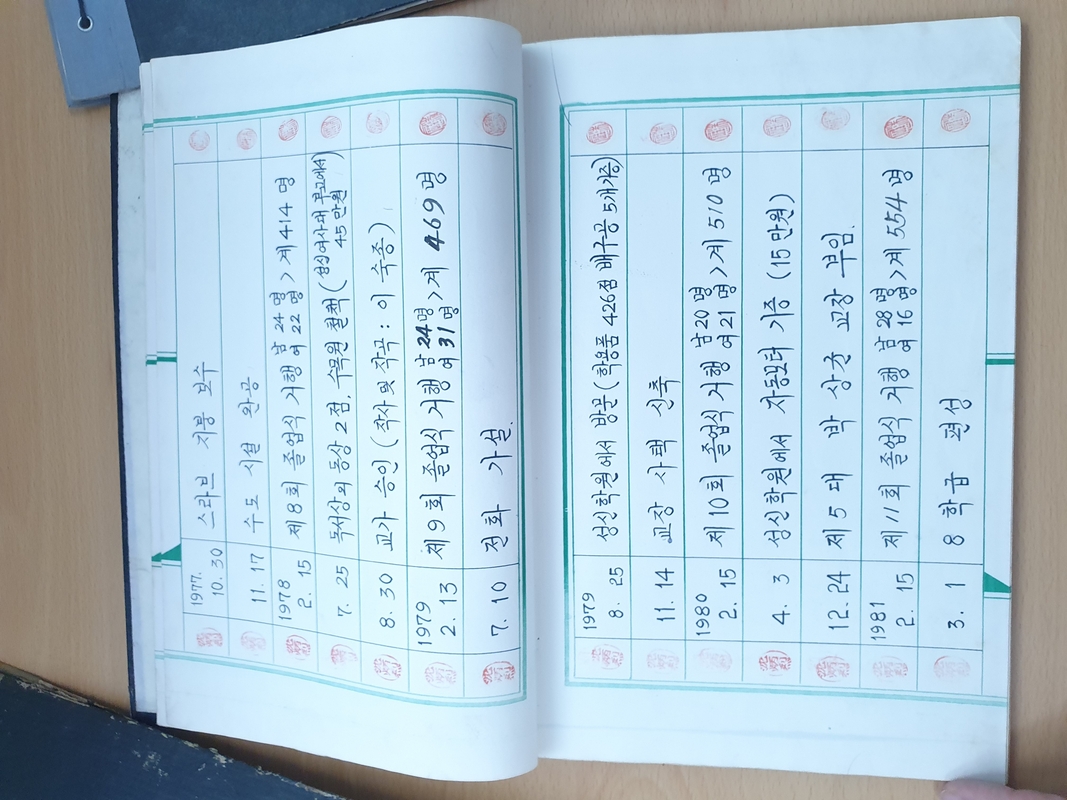 1977.
10. 30 스라브 지붕 보수
11. 17 수도 시설 완공
1978
2. 15 제8회 졸업식 거행 남 24명 여 22명 > 계 414명
7. 25 독서상외 동상 2점. 수목원 철책 (성신여사대 부고에서 45만원)
8. 30 교가 승인 (작사 및 작곡 : 이 숙종)
1979
2. 13 제9회 졸업식 거행 남 24명 여 31명 > 계 469명
7. 10 전화 가설.
1979
8. 25 성신학원에서 방문 (학용품 426점 배구공 5개 기증)
11. 14 교장 사택 신축
1980
2. 15 제10회 졸업식 거행 남 20명 여 21명 > 계 510명
4. 3 성신학원에서 자동모터 기증 (15만원)
12. 24 제5대 박상균 교장 부임.
1981
2. 15 제11회 졸업식 거행 남 28명 여 16명 > 계 554명
3. 1 8학급 편성